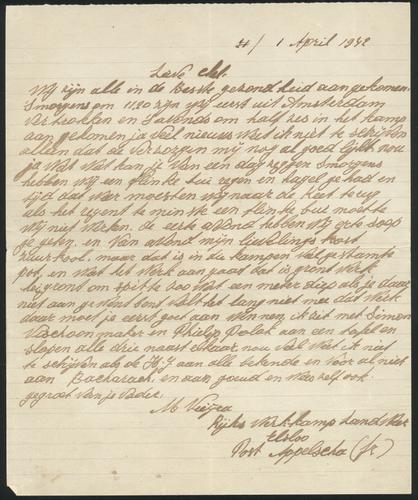 1 April 1942
Leve Chel.
Wij zijn alle in de Beste gezondheid aangekomen
Smorgens om 11.20 zijn wij eerst uit Amsterdam
vertrokken en Savends om half zes in het kamp
aangekomen ja veel nieuws weet ik niet te schrijven
alleen dat de verzorging mij nog al goed lijkt nou
ja wat wat kan je van een dag zeggen Smorgens
hebben wij een flinke bui regen en hagel gehad en
tijd dat wer moesten wij naar de Keet terug
als het regent te minste een flinke bui mochte
wij niet werken. de eerste avond hebben wij erte soep
gekregen en van avond mijn lievelings kost
zuurkool, maar dat is in de kampen veel gestamte
pot, en wat het werk aan gaat dat is grond werk
bij grond om spitte zoo wat een meter diep als je daar
niet aan gewent bent valt het lang niet mee dat werk
daar moet je eerst goet aan wennen, ik zit met Simon
Verschoonmaker en Philip Polak aan een tafel en
slapen alle drie naast elkaar nou veel weet ik niet
te schrijven als de H.J aan alle bekende en voor al niet
aan Bacharach, en aan goud en wees zelf ook
gegroet van je Vader.
M Vieijra
Rijks werkkamp Landweer
Elsloo
Post Appelscha (Fr)